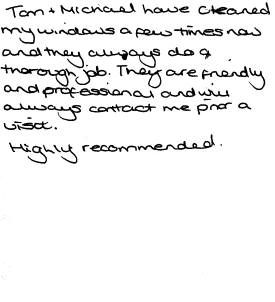 Tom + Michael have cleaned
my windows a few times now
and they always do a
thorough job. They are friendly
and professional and will
always contact me prior a
visit.
Highly recommended.